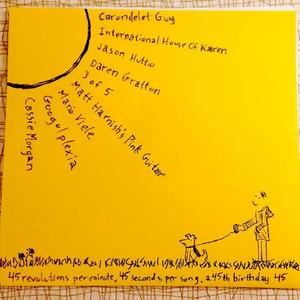 Carondelet Guy
International House Of Karen
Jason Hutto
Daren Gratton
3 of 5
Matt Harnish's Pink Guitar
Mario Viele
Googolplexia
Cassie Morgan
45 revolutions per minute, 45 seconds per song, a 45th birthday 45